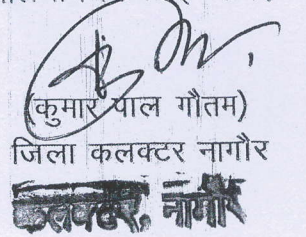 (कुमार पाल गौतम)
जिला कलक्टर नागौर
कलक्टर, नागौर